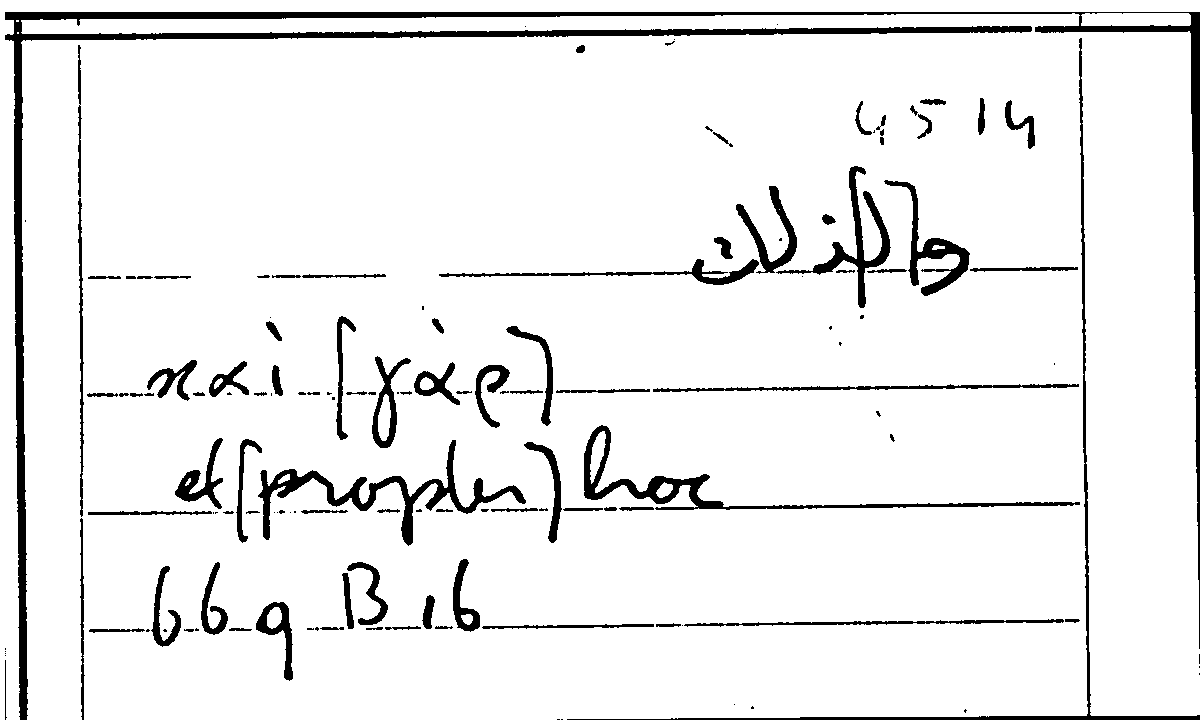 45 14
و[ل]ذلك
καὶ [γὰρ]
et [propter] hoc
669 B 16